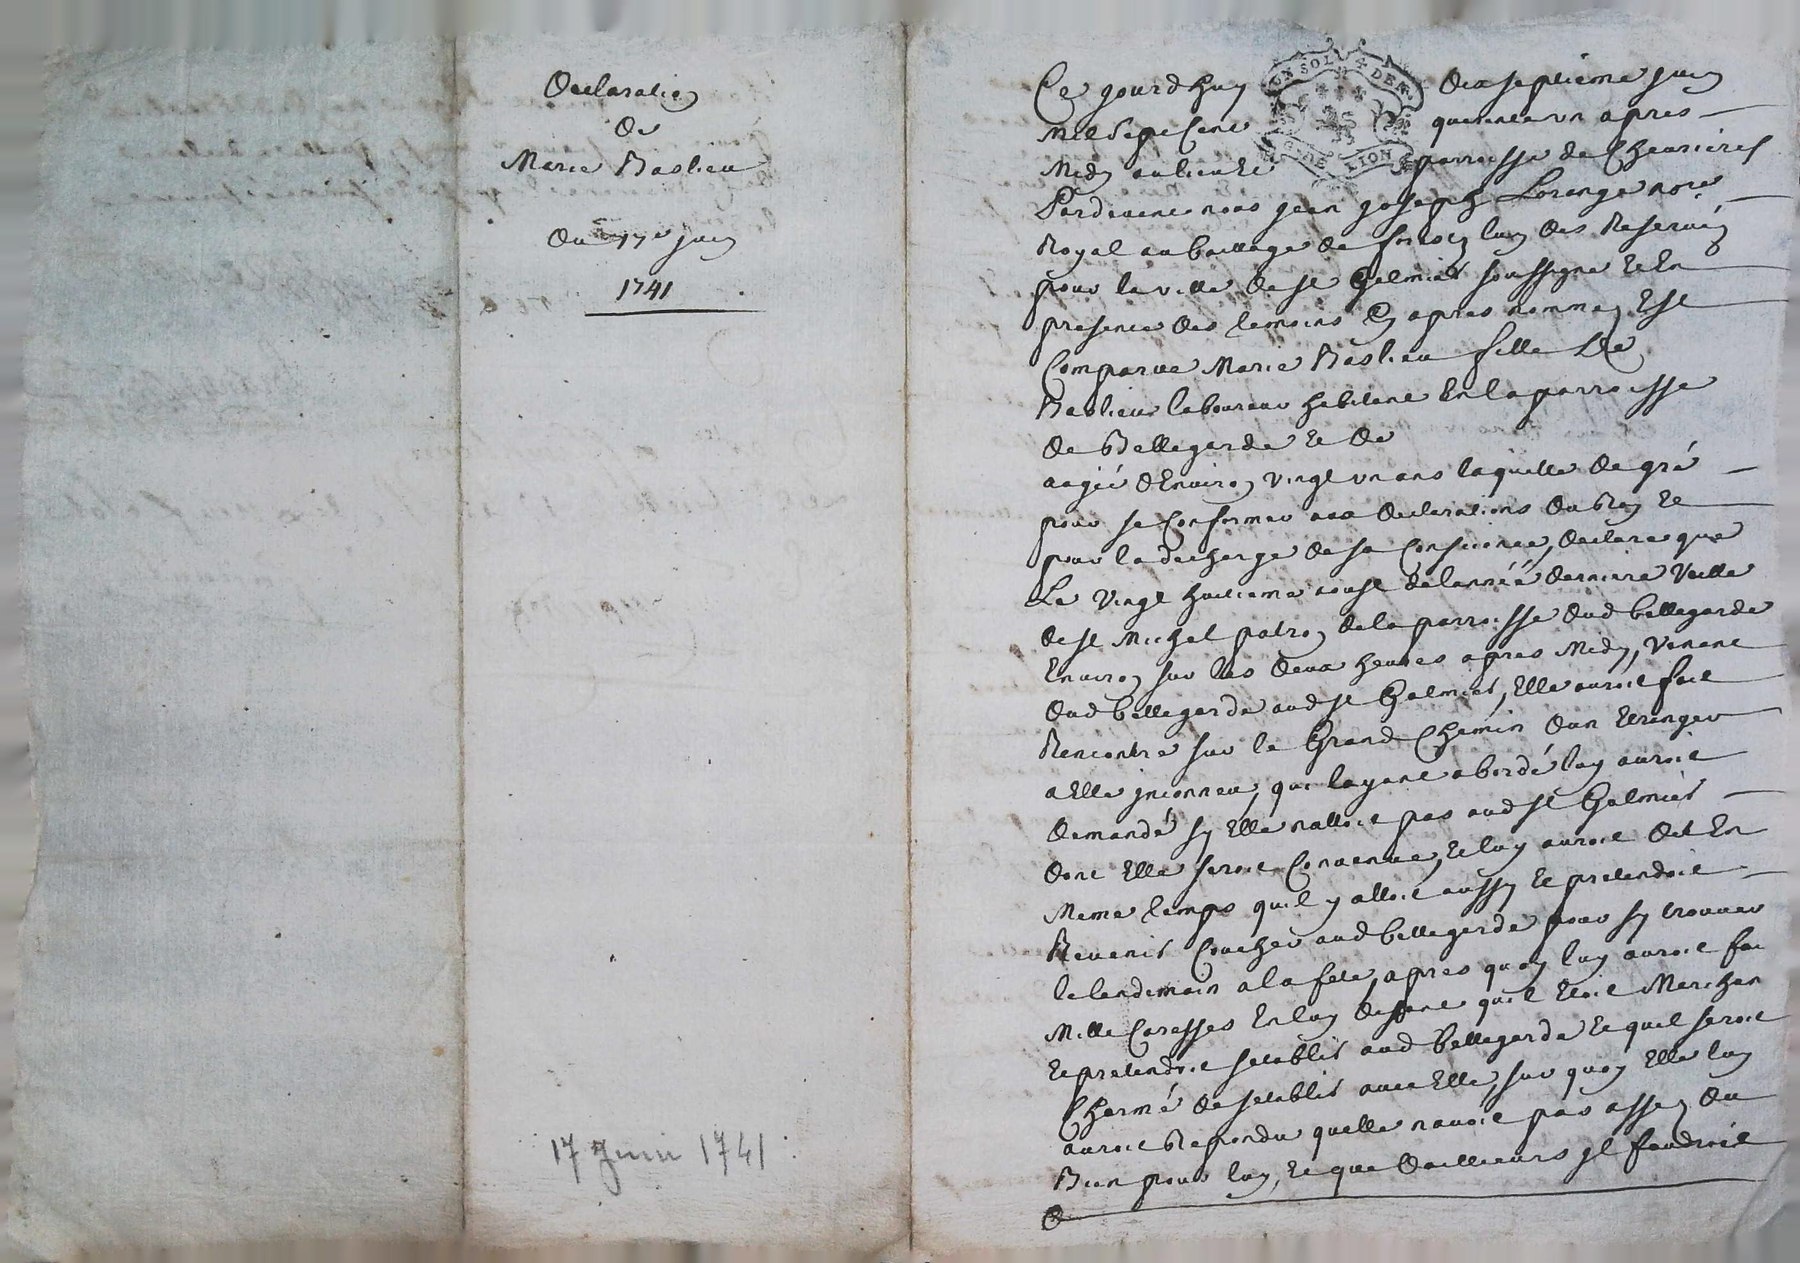 Declaration
De
Marie Baslieu
Du 17e juin
1741
17 Juin 1741
Ce jourdhuy dixseptieme juin
mil sept cent quarente un apres
Midy au lieu et parroisse de Chevrieres
Pardevant nous jean joseph Lorange nore
Royal au bailliage de forest luy des Reservés
pour la ville de st Galmier soussigné et En
presence des temoins Cy apres nommez, Est
Comparue Marie Baslieu fille De
Baslieu laboureur habitant En la parroisse
de Bellegarde et de
aagée d'Environ vingt un ans laquelle de gré
pour se Conformer aux declarations du Roy et
pour la decharge de sa Consience, declare que
Le vingt huitieme aoust de lannéé derniere veille
de st Michel patron de la parroisse dud bellegarde
Environ sur les deux heures apres Midy, venant
dud bellegarde aud st Galmier, Elle auroit fait
Rencontre sur le Grand Chemin d'un Etranger
a Elle jnconneu, qui layant abordé luy auroit
demandé sy Elle nalloit pas aud st Galmier
dont Elle seroit Convenue, et luy auroit dit En
Meme temps quil y alloit aussy et pretendoit
Revenir Coucher aud bellegarde pour sy trouver
le lendemain a la fete, apres quoy luy auroit fai
Mille Caresses En luy disant quil Etoit Marchan
et pretendoit setablir aud bellegarde et quil seroit
Charmé de setablir avec Elle, sur quoy Elle luy
auroit Repondu quelle navoit pas assez du
Bien pour luy, et que dailleurs jl faudroit